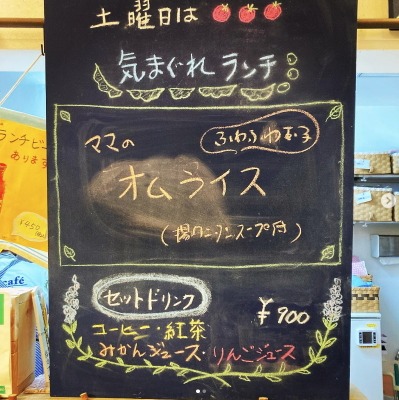 土曜日は
気まぐれランチ
ふわふわ玉子
ママの
オムライス
(揚ワンタンスープ付)
セットドリンク
¥900
コーヒー・紅茶
みかんジュース・りんごジュース
ランチビ
あります
¥450
café